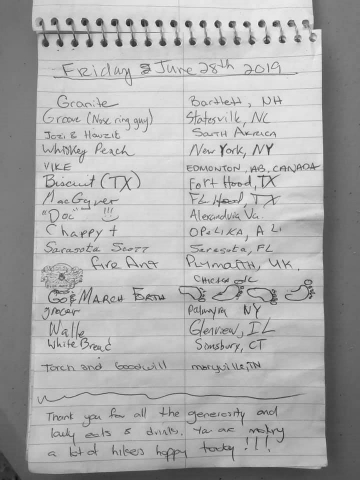 Friday June 28th 2019
Granite Bartlett, NH
Groove (Nose ring guy) Statesville, NC
Jozi & Hauzit South America
Whiskey Peach New York, NY
VIKE EDMONTON, AB, CANADA
Biscuit (TX) Fort Hood, TX
MacGyver Ft Hood, TX
"Doc" !!! Alexandria Va.
Chappy t OPELIKA, AL
Sarasota Scott Sarasota, FL
Fire Ant Plymouth, UK.
GO & MARCH FORTH
grocer Palmyra NY
Walle Glenview, IL
White Bread Simsbury, CT
Torch and Goodwill maryville, TN
Thank you for all the generosity and
eats & drinks. Ya are making
a lot of hikers happy today!!!